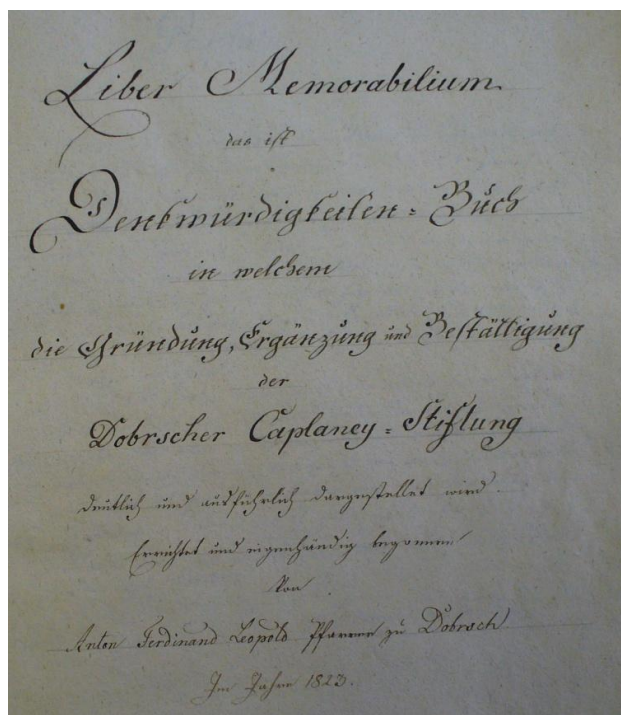 Liber Memorabilium
das ist
Denkwürdigkeiten = Buch
in welchem
die Gründung, Ergänzung und Bestättigung
der
Dobrscher Caplaney = Stiftung
deutlich und ausführlich dargestellet wird.
Errichtet und eigenhändig begonnen
Von
Anton Ferdinand Leopold Pfarrer zu Dobrsch
Im Jahre 1823.